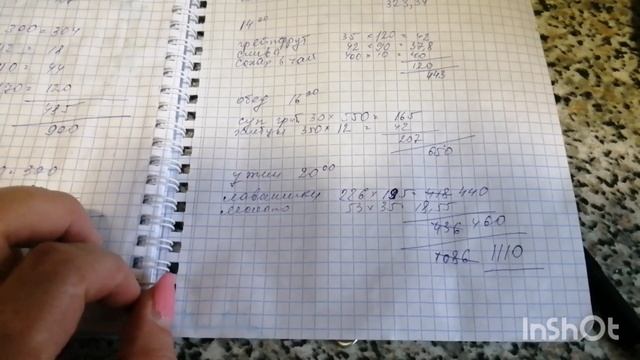 300 = 304
= 18
= 44
= 120
485
990
= 300
323,34
14 00
грейпфрут 35 × 120 = 42
слива 42 × 90 = 37,8
сахар в чай 400 × 10 = 40
120
443
обед 16 00
суп гр б 30 × 550 = 165
350 × 12 = 42
207
650
ужин 20 00
226 × 195 = 418 440
молоко 53 × 35 = 18,55
436 460
1086 1110
InShOt